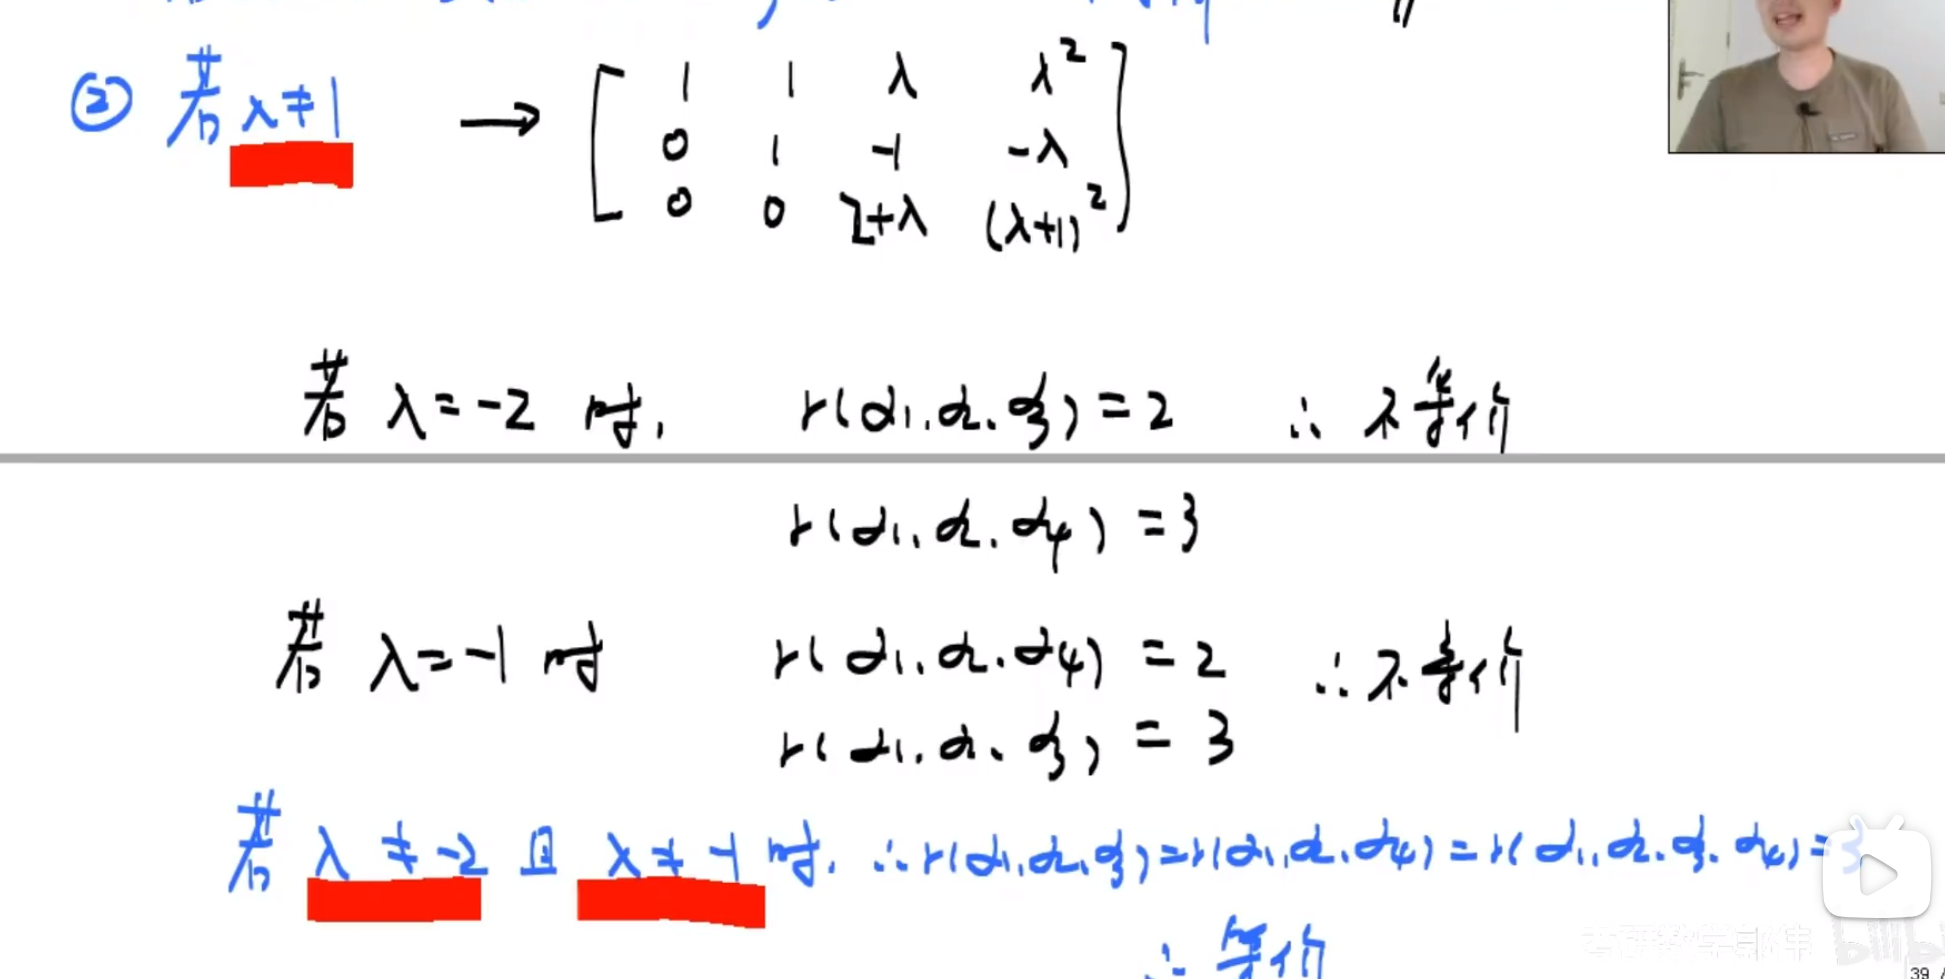 ② 若 λ≠1 → [ 1 1 λ λ²
0 1 -1 -λ
0 0 2+λ (λ+1)² ]
若 λ=-2 时, r(α₁.α₂.α₃)=2 ∴ 不等价
r(α₁.α₂.α₄)=3
若 λ=-1 时 r(α₁.α₂.α₄)=2 ∴不等价
r(α₁.α₂.α₃)=3
若 λ≠-2 且 λ≠-1 时. ∴r(α₁.α₂.α₃)=r(α₁.α₂.α₄)=r(α₁.α₂.α₃.α₄)=3
∴ 等价
考研数学郭伟 bilibili
39